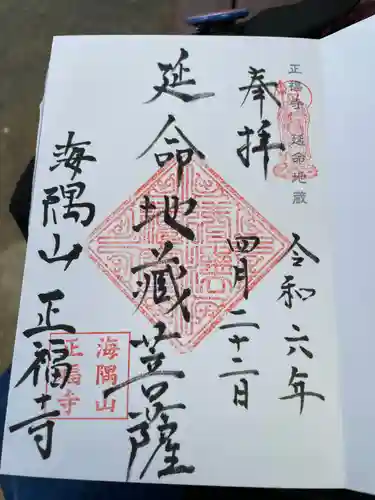 正福寺 延命地蔵
奉拝
令和六年
四月二十二日
延命地蔵菩薩
海隅山 正福寺
海隅山
正福寺